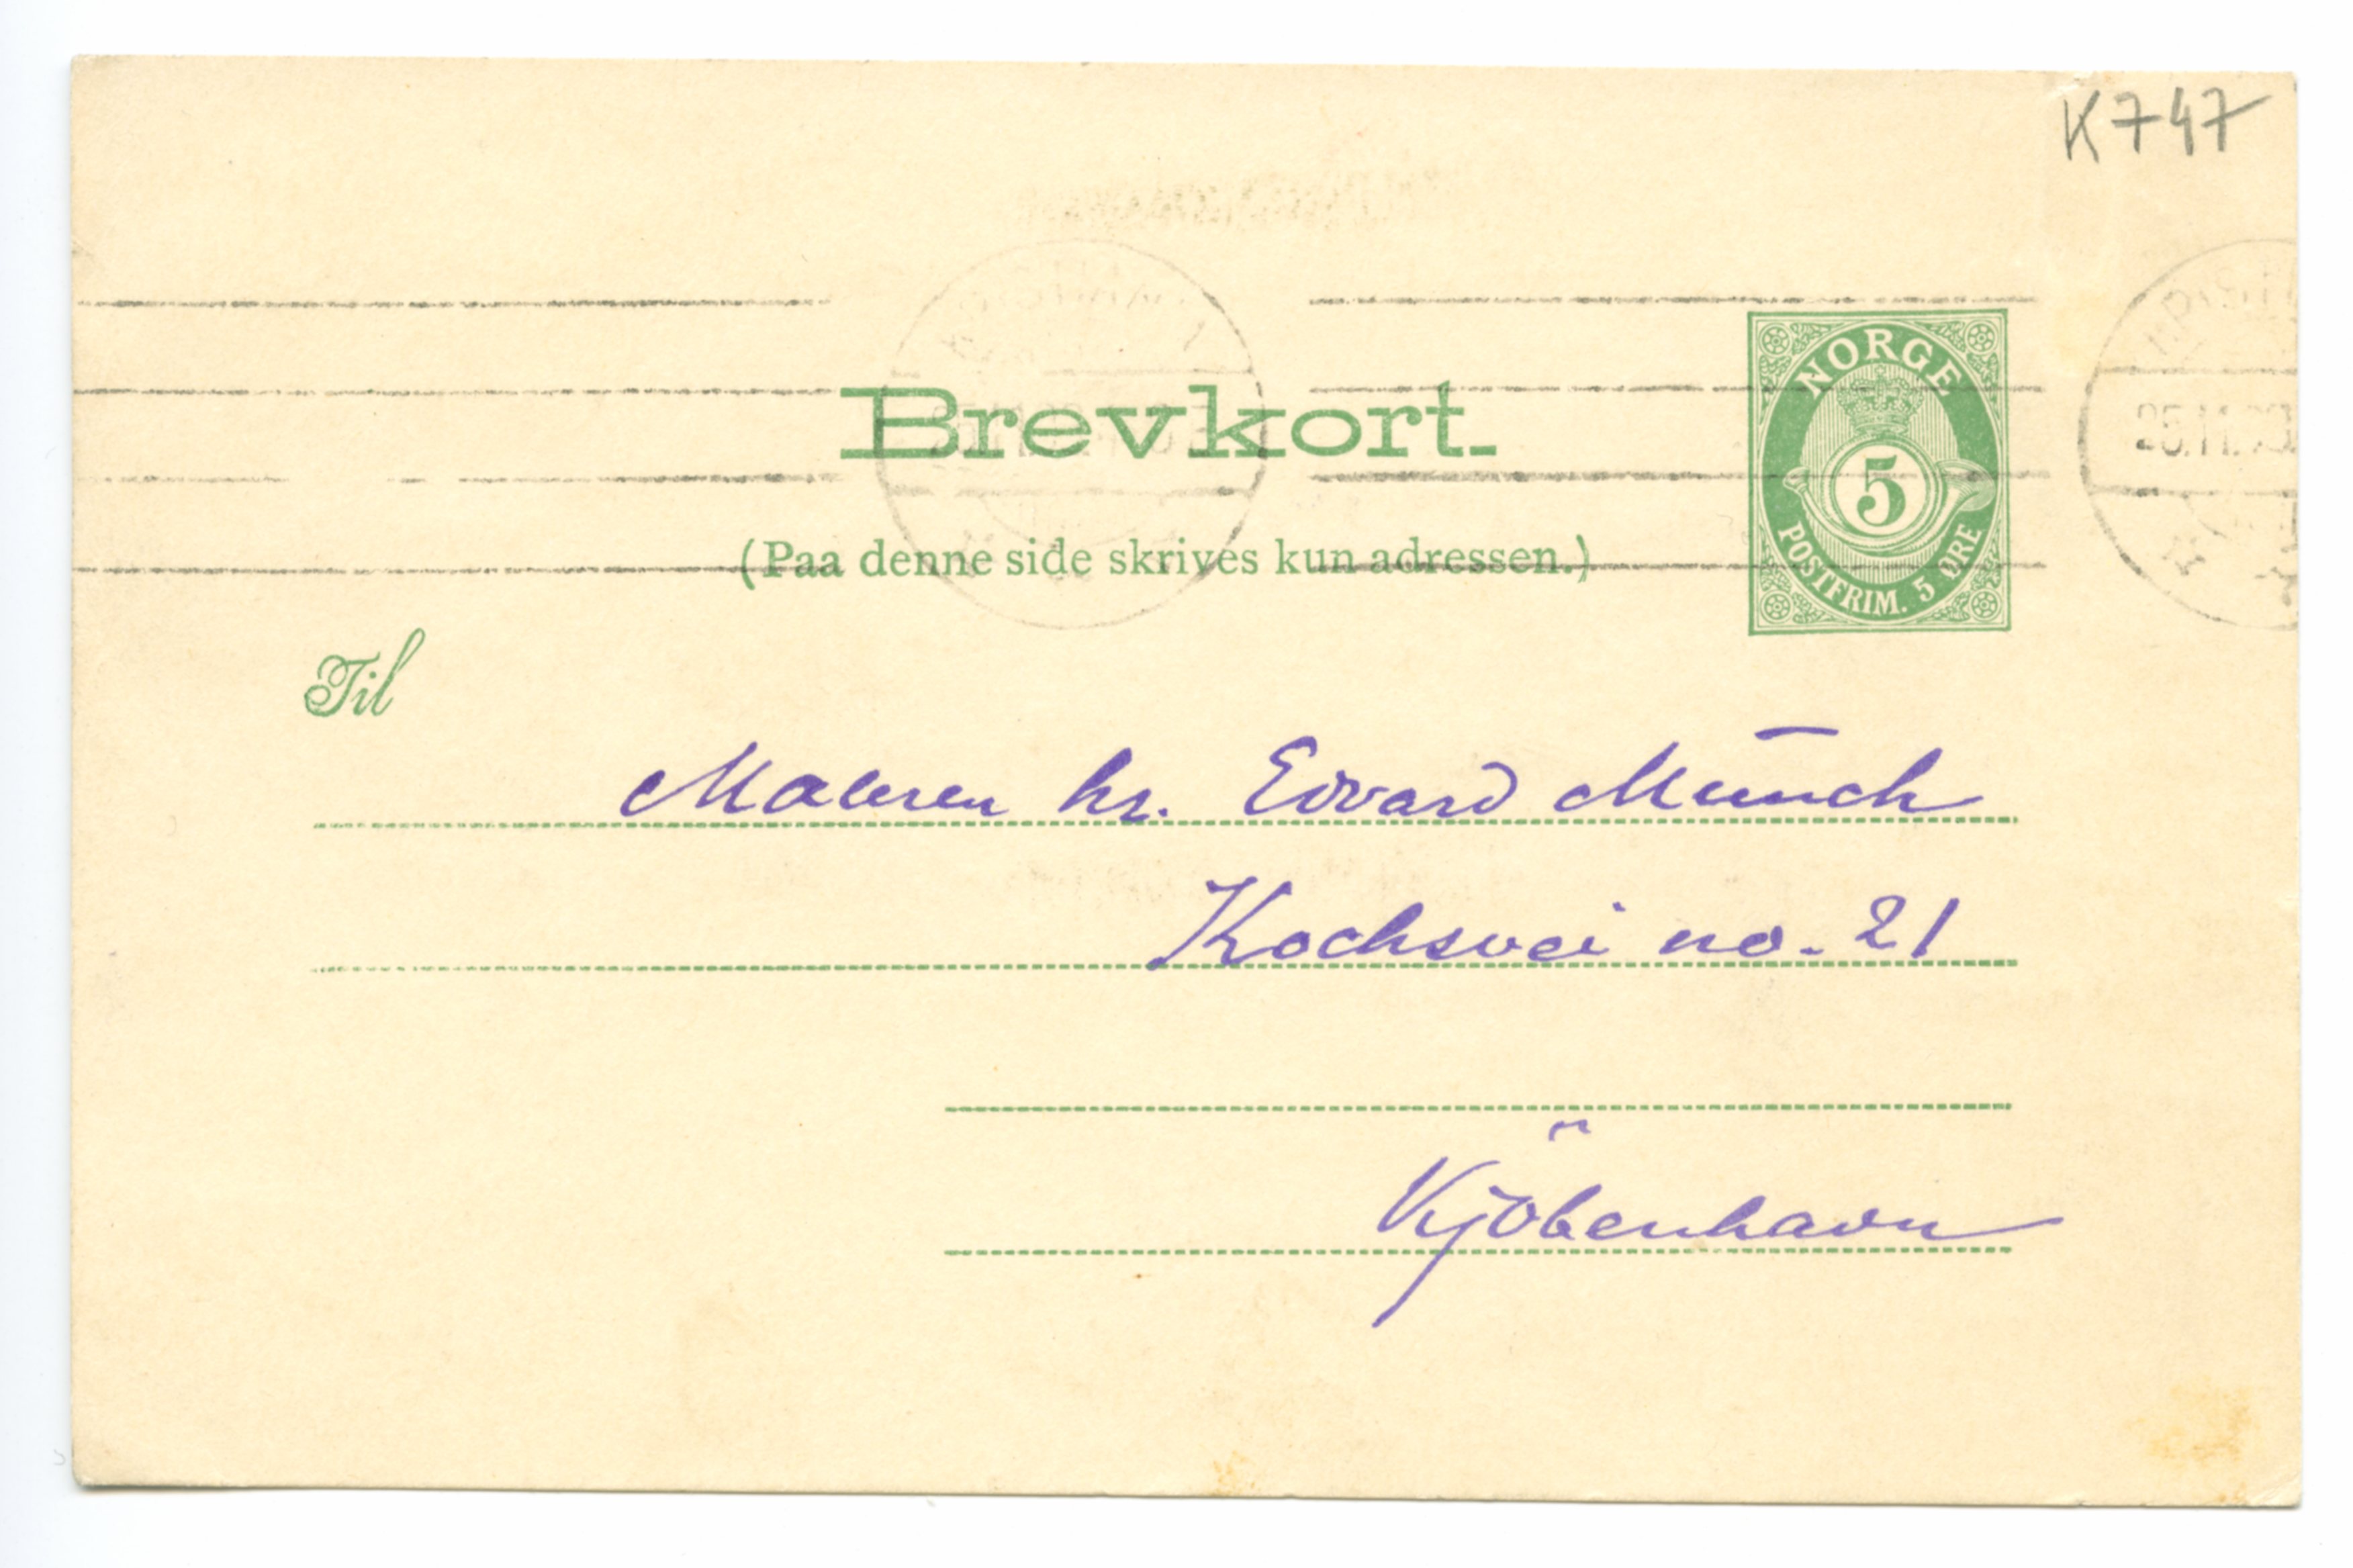 K747
Brevkort.
NORGE
5
POSTFRIM. 5 ØRE
(Paa denne side skrives kun adressen.)
Til
Maleren hr. Edvard Munch
Kochsvei no. 21
Kjöbenhavn